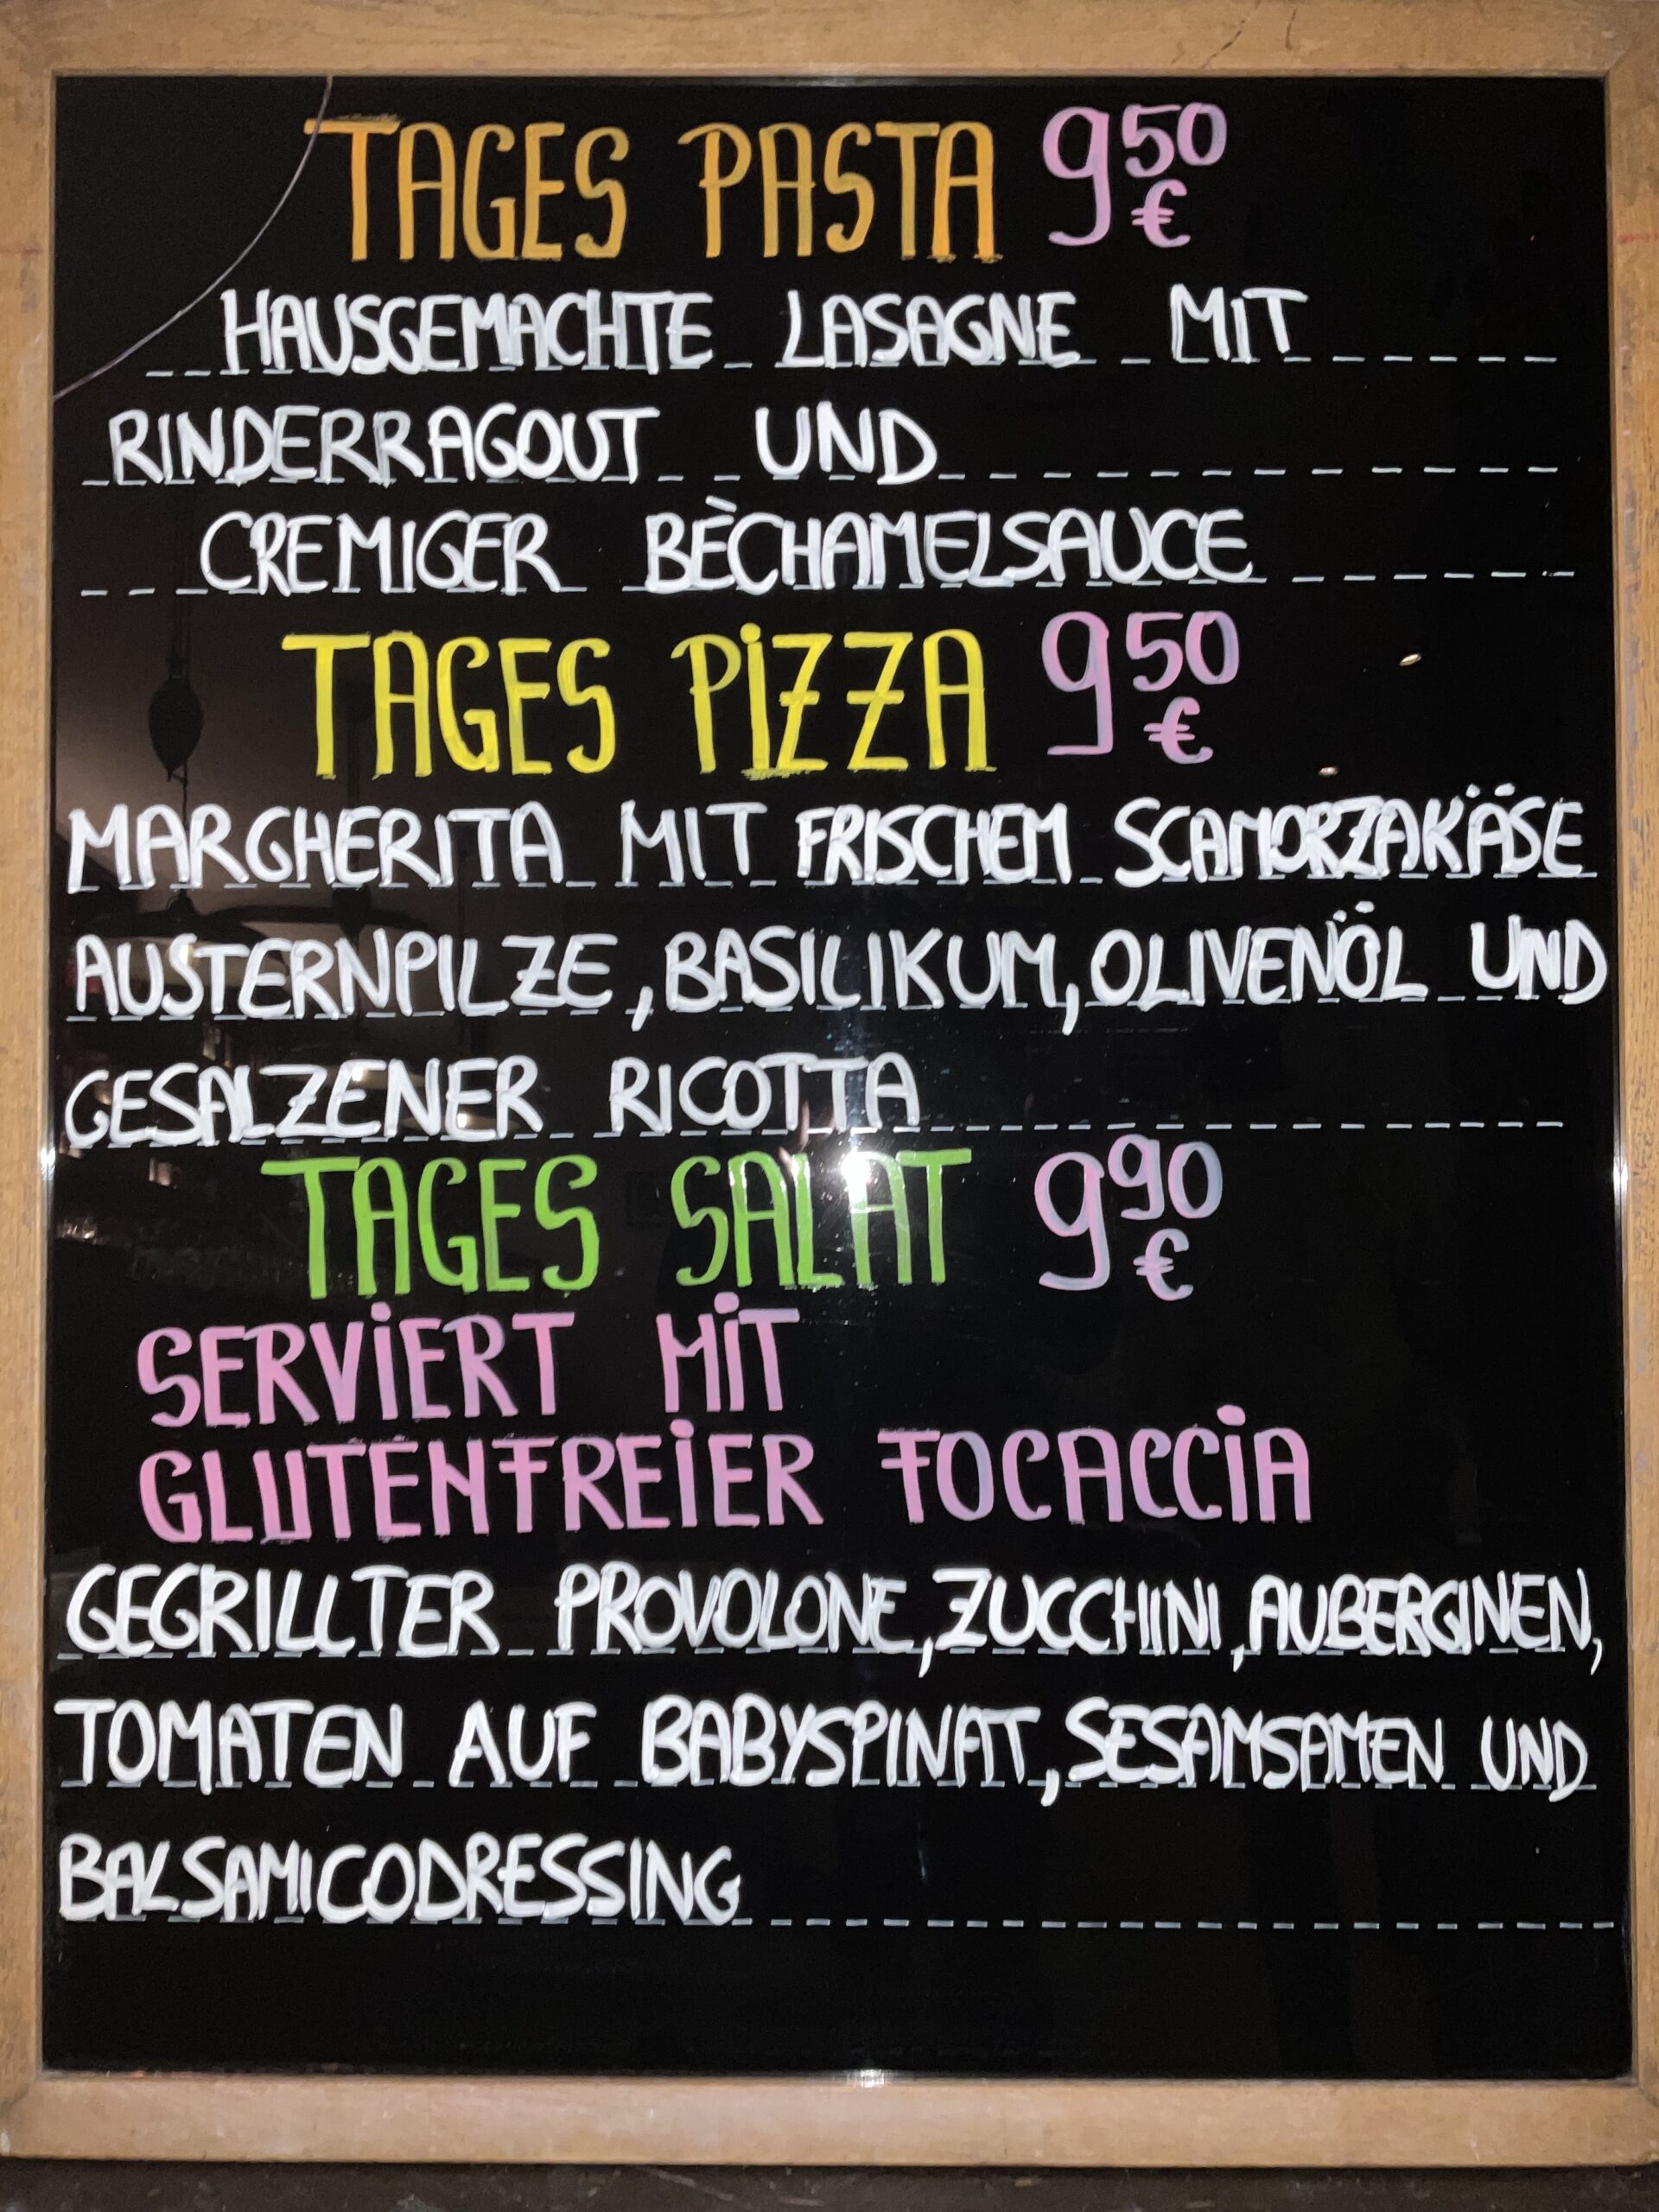 TAGES PASTA 9 50 €
HAUSGEMACHTE LASAGNE MIT
RINDERRAGOUT UND
CREMIGER BÈCHAMELSAUCE
TAGES PiZZA 9 50 €
MARGHERITA MIT FRISCHEM SCAMORZAKÄSE
AUSTERNPILZE, BASILIKUM, OLIVENÖL UND
GESALZENER RICOTTA
TAGES SALAT 9 90 €
SERViERT MiT
GLUTENFREiER FOCACCiA
GEGRILLTER PROVOLONE, ZUCCHINI, AUBERGINEN,
TOMATEN AUF BABYSPINAT, SESAMSAMEN UND
BALSAMICODRESSING